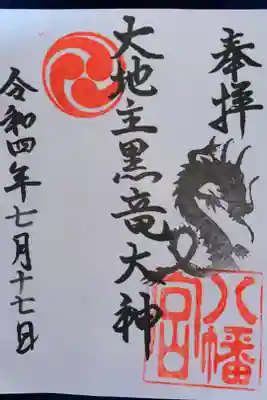 奉拝
大地主黒竜大神
令和四年七月十七日
八幡宮